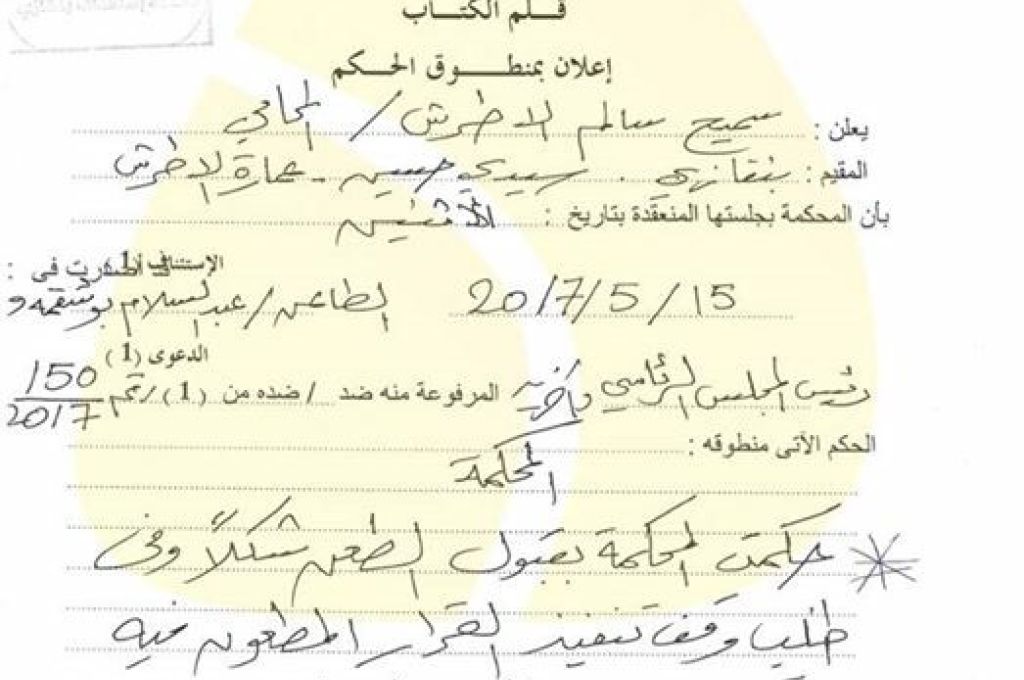 قلم الكتاب
إعلان بمنطوق الحكم
يعلن : سميح سالم الاطرش / المحامي
المقيم : بنغازي . سيدي حسين - عمارة الاطرش
بأن المحكمة بجلستها المنعقدة بتاريخ : الاثنين
15/5/2017 الإستئناف (1) أصدرت في :
الطاعن / عبدالسلام بوشقمه و
رئيس المجلس الرئاسي وآخرين المرفوعة منه ضد / ضده من (1) الدعوى (1) رقم 150/2017
الحكم الآتى منطوقه :
المحكمة
حكمت المحكمة بقبول الطعن شكلاً وفى
طلب وقف تنفيذ القرار المطعون فيه